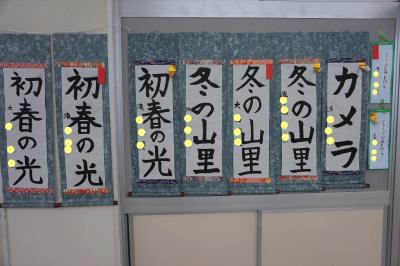 初春の光
初春の光
初春の光
冬の山里
冬の山里
冬の山里
カメラ